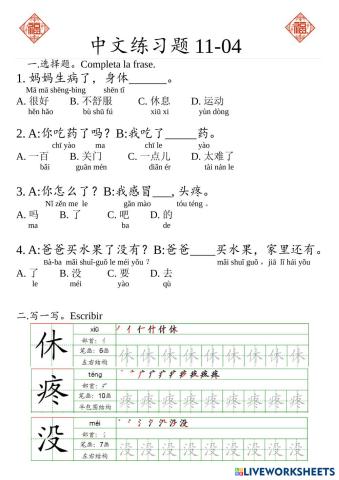 中文练习题 11-04
一.选择题。Completa la frase.
1. 妈妈生病了，身体______。
Mā mā shēng-bìng shēn tǐ
A. 很好 B. 不舒服 C. 休息 D. 运动
hěn hǎo bù shū fú xiū xi yùn dòng
2. A:你吃药了吗？B:我吃了_____药。
chī yào ma chī le yào
A. 一百 B. 关门 C. 一点儿 D. 太难了
bǎi guān mén diǎn ér tài nán le
3. A:你怎么了？B:我感冒___,头疼。
Nǐ zěn me le gǎn mào tóu téng 。
A. 吗 B. 了 C. 吧 D. 的
ma le ba de
4. A:爸爸买水果了没有？B:爸爸____买水果，家里还有。
Bà-ba mǎi shuǐ-guǒ le méi yǒu？ mǎi shuǐ guǒ ，jiā lǐ hái yǒu
A. 了 B. 没 C. 要 D. 去
le méi yào qù
二.写一写。Escribir
休 xiū
部首：亻
笔画：6画
左右结构
休 休 休 休 休 休 休
疼 téng
部首：疒
笔画：10画
半包围结构
疼 疼 疼 疼 疼 疼 疼
没 méi
部首：氵
笔画：7画
左右结构
没 没 没 没 没 没 没
LIVEWORKSHEETS